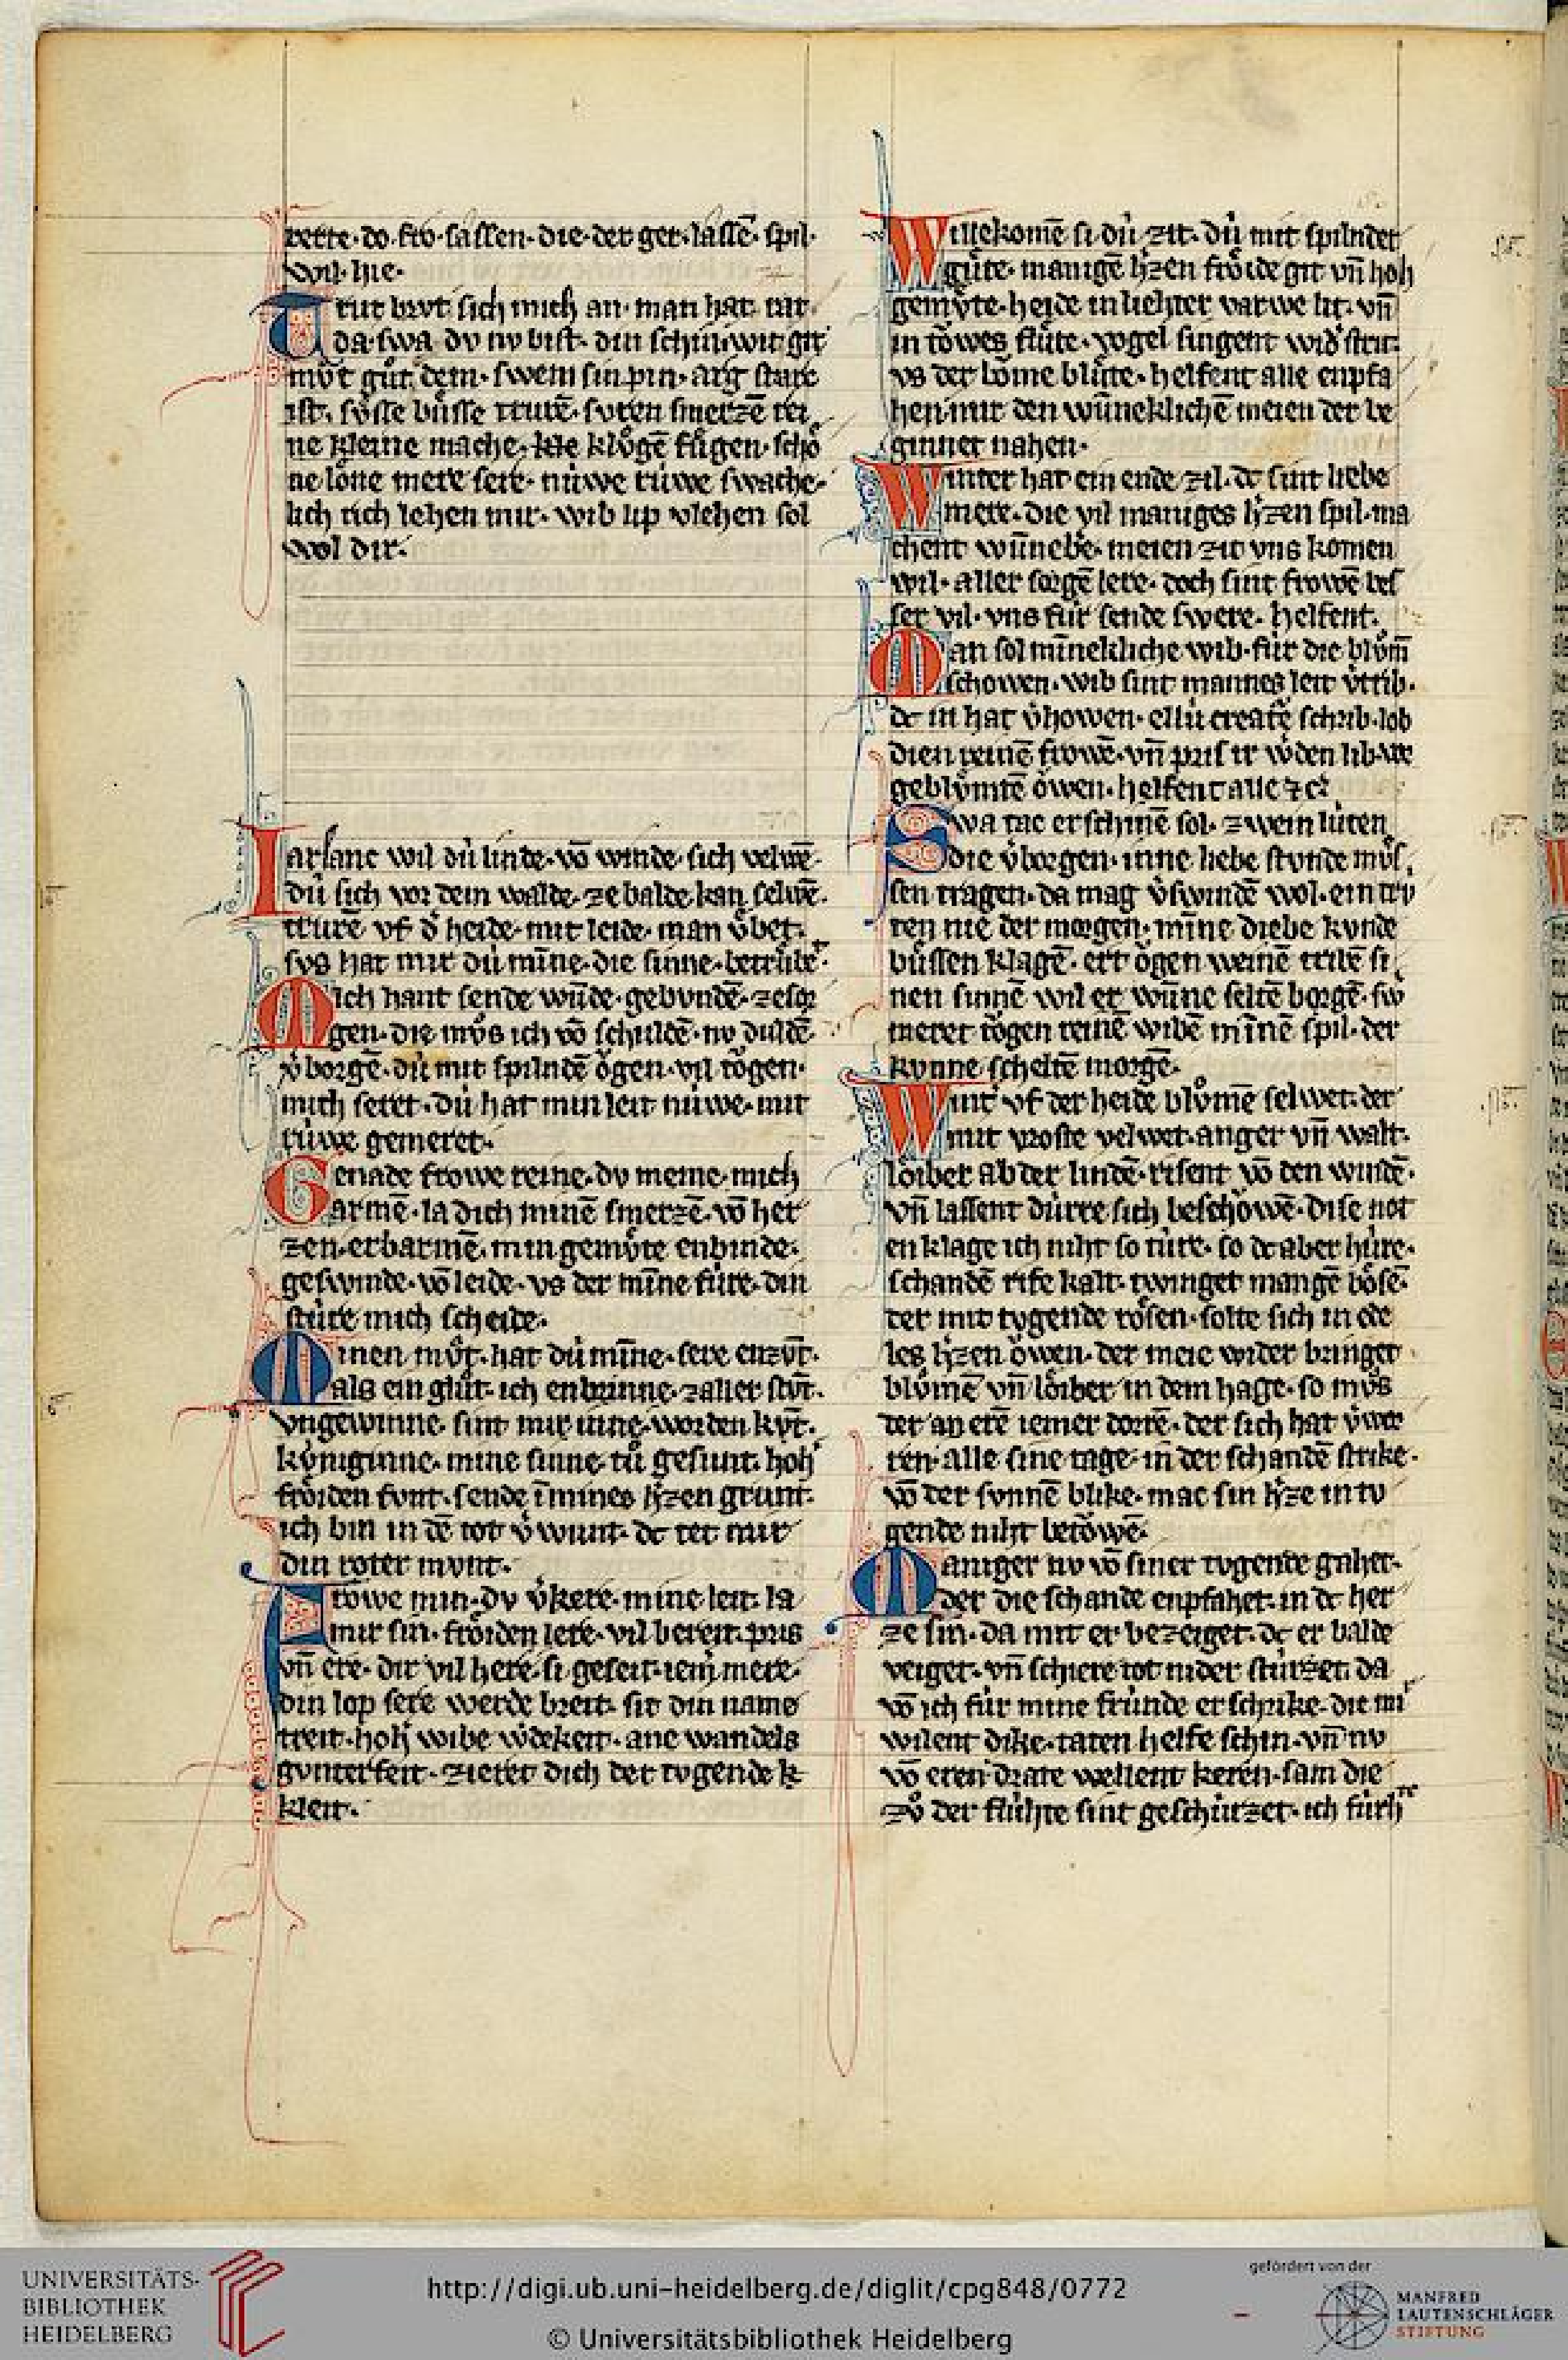 rette·do·fro·sassen·die·der get·lassē·spil·
wil·hie·
Trut brvt sich mich an·man hat·rat·
da·swa dv nv bist·din schin·wit git
mvͦt guͦt dem·swem sin pin·arg starc
ist·svͤsse buͤsse trutē·svren smerzē rei
ne kleine mache·kle klvͦgē fuͤgen·schoͤ
ne loͤne mere seit·nuwe ruwe swache·
lich rich lehen mir·wib lip vlehen sol
wol dir·
Iarlanc wil dù linde·vō winde·sich velwē·
dù sich vor dem walde·ze balde kan selwē·
trurē vf d̾ heide·mit leide·man vͤbet·
svs hat mir dù mīne·die sinne·betruͤbet·
Mich hant sende wūde·gebvndē·ze sor
gen·die mvͦs ich vō schuldē·nv duldē·
v̾borgē·dù mit spilndē oͮgen·vil toͮgen·
mich seret·dù hat min leit nùwe·mit
rùwe gemeret·
Genade frowe reine·dv meine·mich
armē·la dich minē smerzē·vō her
zen·erbarmē·min gemvͤte enbinde·
geswinde·vō leide·vs der mīne fùre·din
stùre mich scheide·
Minen mvͦt·hat dù mīne·sere enzvnt·
als ein gluͦt·ich enbrinne·zaller stvnt·
vngewinne·sint mir inne·worden kvnt·
kvniginne·mine sinne·tuͦ gesunt·hoh'
froͤiden fvnt·sende īmines h'zen grunt·
ich bin in dē tot v̾wunt·dc tet mir
din roter mvnt·
Frowe min·dv v̾kere·mine leit·la
mir sin·froͤiden lere·vil bereit·pris
vn̄ ere·dir vil here·si geseit·iem̄ mere·
din lop sere werde breit·sit din name
treit·hoh wibe w̾dekeit·ane wandels
gvnterfeit·zieret dich der tvgende k
kleit·
Willekomē si dù zit·dù mit spilnder
guͤte·manigē h'zen froͤide git vn̄ hoh
gemvͤte·heide in liehter varwe lit·vn̄
in toͮwes fluͤte·vogel singent wid̾ strit·
vs der boͮme bluͤte·helfent alle enpfa
hen·mit den wūneklichē meien der be
ginnet nahen·
Winter hat ein ende zil·dc sint liebe
mere·die vil maniges h'zen spil·ma
chent wūnebe·meien zit vns komen
wil·aller sorgē lere·doch sint frowē bes
ser vil·vns fùr sende swere·helfent·
Man sol mīnekliche wib·fùr die blvͦm̄
schowen·wib sint mannes leit v̾trib·
dc in hat v̾howen·ellù creatē schrib·lob
dien reinē frowē·vn̄ pris ir w̾den lib·we
geblvͤmtē oͮwen·helfent alle ⁊ cͭ
Swa tac erschinē sol·zwein lùten
die v̾borgen·inne liebe stvnde mvͤs
sen tragen·da mag v̾swindē wol·ein trv
ren nie der morgen·mīne diebe kvnde
buͤssen klagē·ert oͮgen weinē tribē si
nen sinnē wil er wūne seltē borgē·sw
meret toͮgen reinē wibē mīnē spil·der
kvnne scheltē morgē·
Wint vf der heide blvͦmē selwet·der
mit vroste velwet·anger vn̄ walt·
loͤiber ab der lindē·risent vō den windē·
vn̄ lassent dùrre sich beschoͮwē·dise not
en klage ich niht so tùre·so dc aber hùre·
schandē rife kalt·twinget mangē boͤsē·
der mit tvgende roͤsen·solte sich in ede
les h'zen oͮwen·der meie wider bringet
blvͦmē vn̄ loͤiber in dem hage·so mvͦs
der an erē iemer dorrē·der sich hat v̾wor
ren·alle sine tage·in der schandē strike·
vō der svnnē blike·mac sin h'ze in tv
gende niht betoͮwē·
Maniger nv vō siner tvgende gahet·
der die schande enpfahet·in dc her
ze sin·da mit er bezeiget·dc er balde
veiget·vn̄ schiere tot nider stùrzet·da
vō ich fùr mine frùnde erschrike·die mi'
wilent dike·taten helfe schin·vn̄ nv
vō eren drate wellent keren·sam die
zvͦ der fluhte sint geschùrzet·ich fùrhte
UNIVERSITÄTS-
BIBLIOTHEK
HEIDELBERG
http://digi.ub.uni-heidelberg.de/diglit/cpg848/0772
© Universitätsbibliothek Heidelberg
gefördert von der
MANFRED
LAUTENSCHLÄGER
STIFTUNG